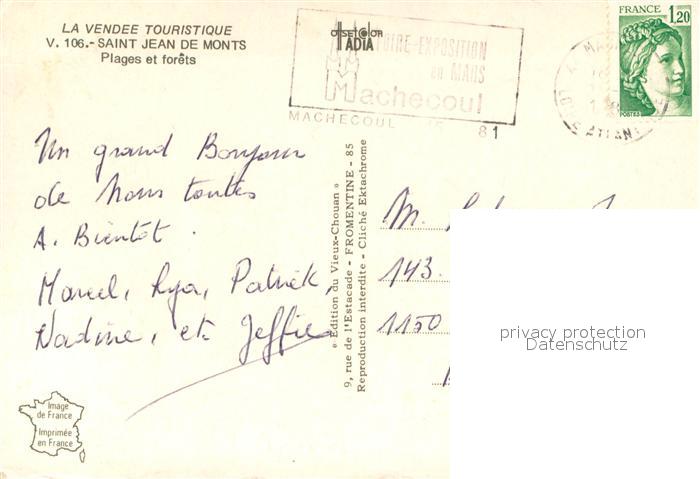 LA VENDEE TOURISTIQUE
V. 106.- SAINT JEAN DE MONTS
Plages et forêts
offset color
IADIA
FOIRE-EXPOSITION
en MARS
Machecoul
MACHECOUL
81
FRANCE 1,20
POSTES
Un grand Bonjour
de Nous toutes
A. Bientot.
Marcel, Lya, Patrick,
Nadine, et Jeffie
« Edition du Vieux-Chouan »
9, rue de l'Estacade - FROMENTINE - 85
Reproduction interdite - Cliché Ektachrome
M.
143.
1150
privacy protection
Datenschutz
Image
de France
Imprimée
en France